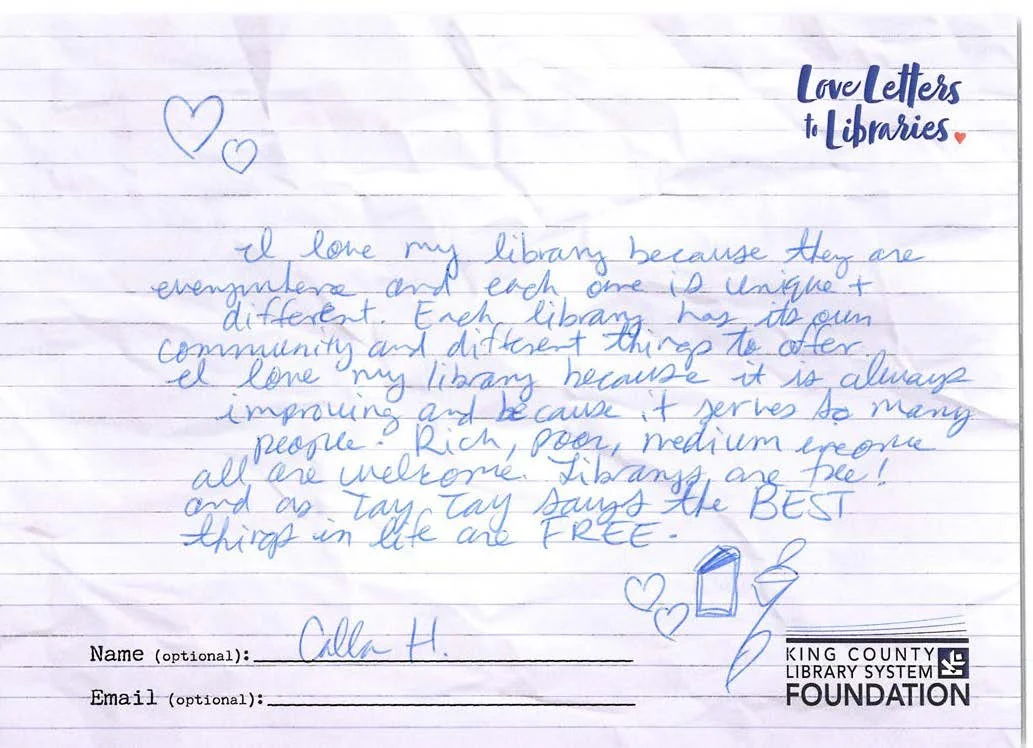 Love Letters
to Libraries.
I love my library because they are
everywhere and each one is unique +
different. Each library has its own
community and different things to offer.
I love my library because it is always
improving and because it serves so many
people. Rich, poor, medium income
all are welcome. Librarys are free!
and as Tay Tay says the BEST
things in life are FREE.
Name (optional): Calla H.
Email (optional):
KING COUNTY
LIBRARY SYSTEM
FOUNDATION